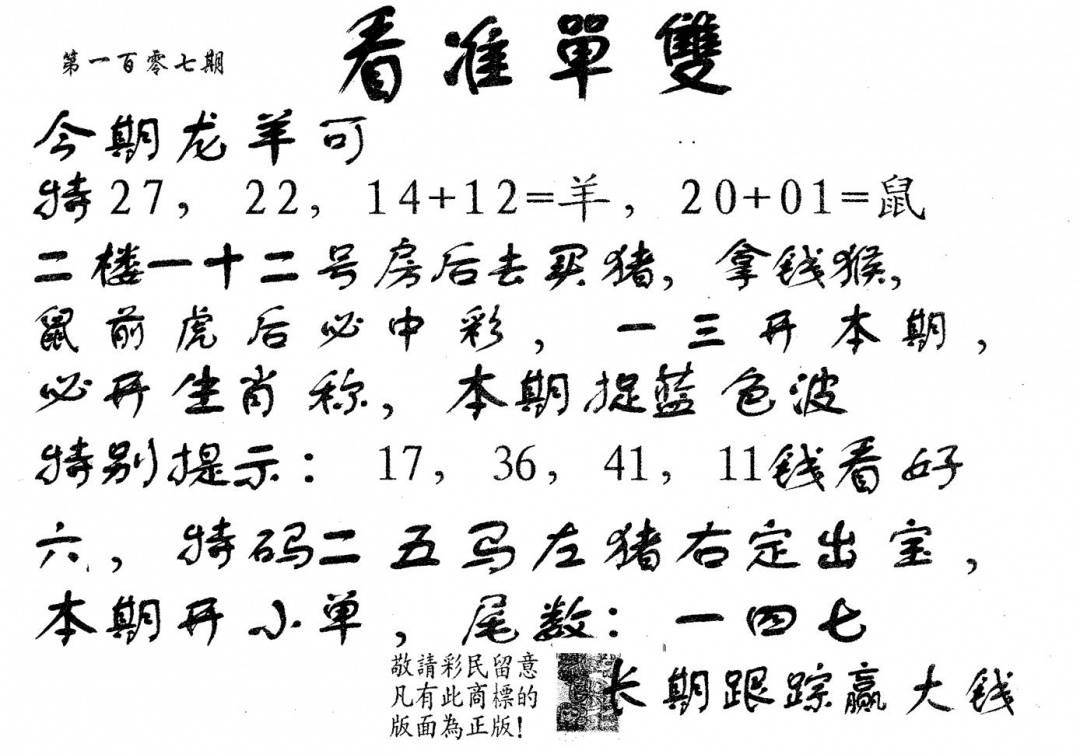 第一百零七期
看准單雙
今期龙羊可
特27，22，14+12=羊，20+01=鼠
二楼一十二号房后去买猪，拿钱猴，
鼠前虎后必中彩，一三开本期，
必开生肖称，本期捉蓝色波
特别提示：17，36，41，11钱看好
六，特码二五马左猪右定出宝，
本期开小单，尾数：一四七
敬請彩民留意
凡有此商標的
版面為正版！
长期跟踪赢大钱